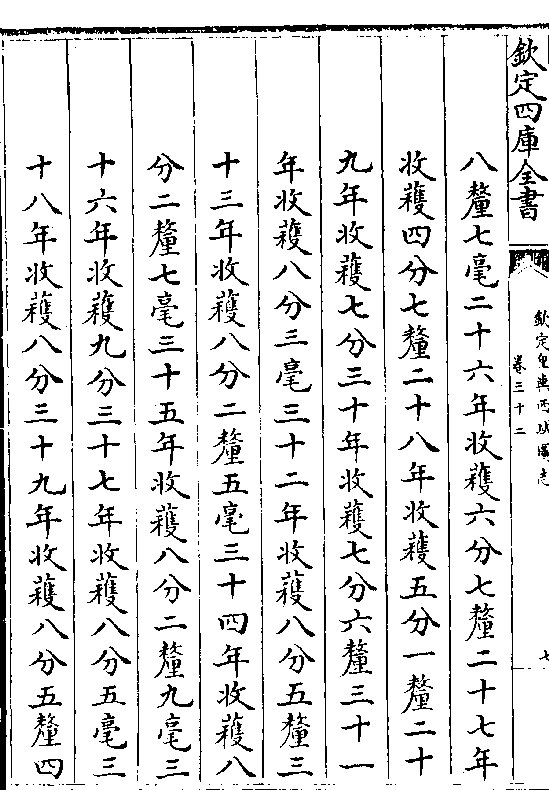 欽定四庫全書
欽定皇輿西域圖志
卷三十二
七
八釐七毫二十六年收穫六分七釐二十七年
收穫四分七釐二十八年收穫五分一釐二十
九年收穫七分三十年收穫七分六釐三十一
年收穫八分三毫三十二年收穫八分五釐三
十三年收穫八分二釐五毫三十四年收穫八
分二釐七毫三十五年收穫八分二釐九毫三
十六年收穫九分三十七年收穫八分五毫三
十八年收穫八分三十九年收穫八分五釐四